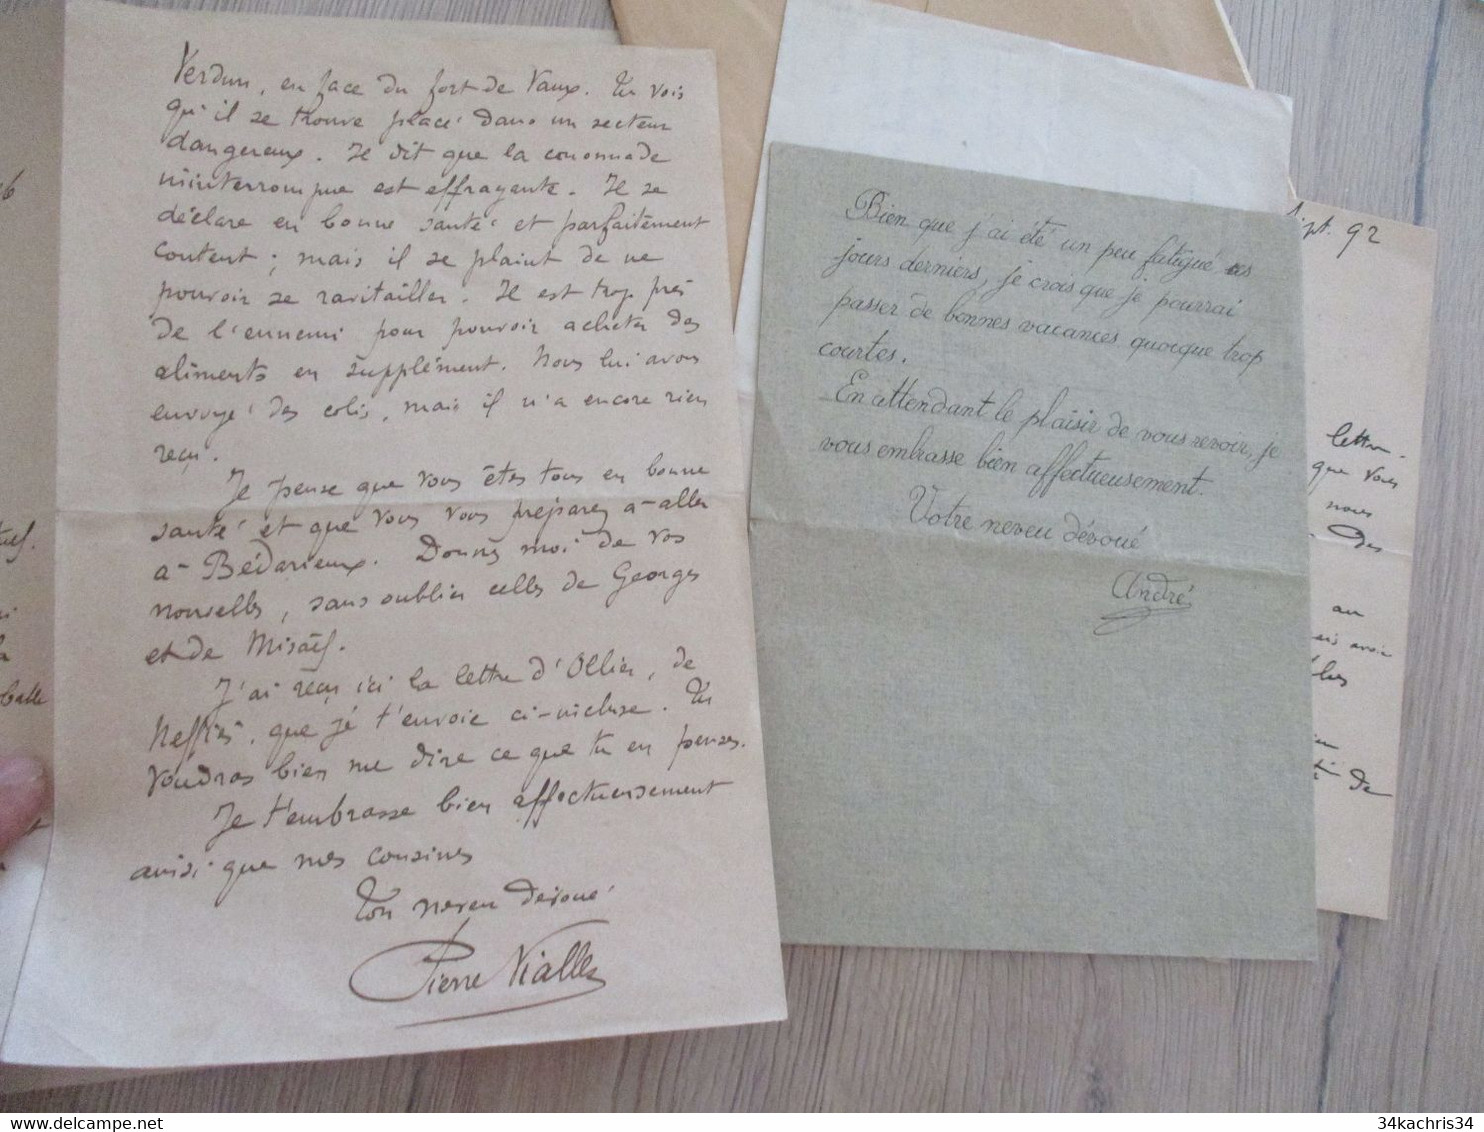 Verdun, en face du fort de Vaux. Tu vois
qu'il se trouve placé dans un secteur
dangereux. Il dit que la canonnade
ininterrompue est effrayante. Il se
déclare en bonne santé et parfaitement
content ; mais il se plaint de ne
pouvoir se ravitailler. Il est trop près
de l'ennemi pour pouvoir acheter des
aliments en supplément. Nous lui avons
envoyé des colis, mais il n'a encore rien
reçu.
Je pense que vous êtes tous en bonne
santé et que vous vous préparez à aller
à Bédarieux. Donnez moi de vos
nouvelles, sans oublier celles de Georges
et de Misaël.
J'ai reçu ici la lettre d'Ollier, de
Neffiès, que je t'envoie ci-incluse. Tu
voudras bien me dire ce que tu en penses.
Je t'embrasse bien affectueusement
ainsi que mes cousines
Ton neveu dévoué
Pierre Vialles
Bien que j'ai été un peu fatigué ces
jours derniers, je crois que je pourrai
passer de bonnes vacances quoique trop
courtes.
En attendant le plaisir de vous revoir, je
vous embrasse bien affectueusement.
Votre neveu dévoué
André
Sept. 92
lettre.
que vous
nous
des
au
avoir
de
34kachris34
34kachris34